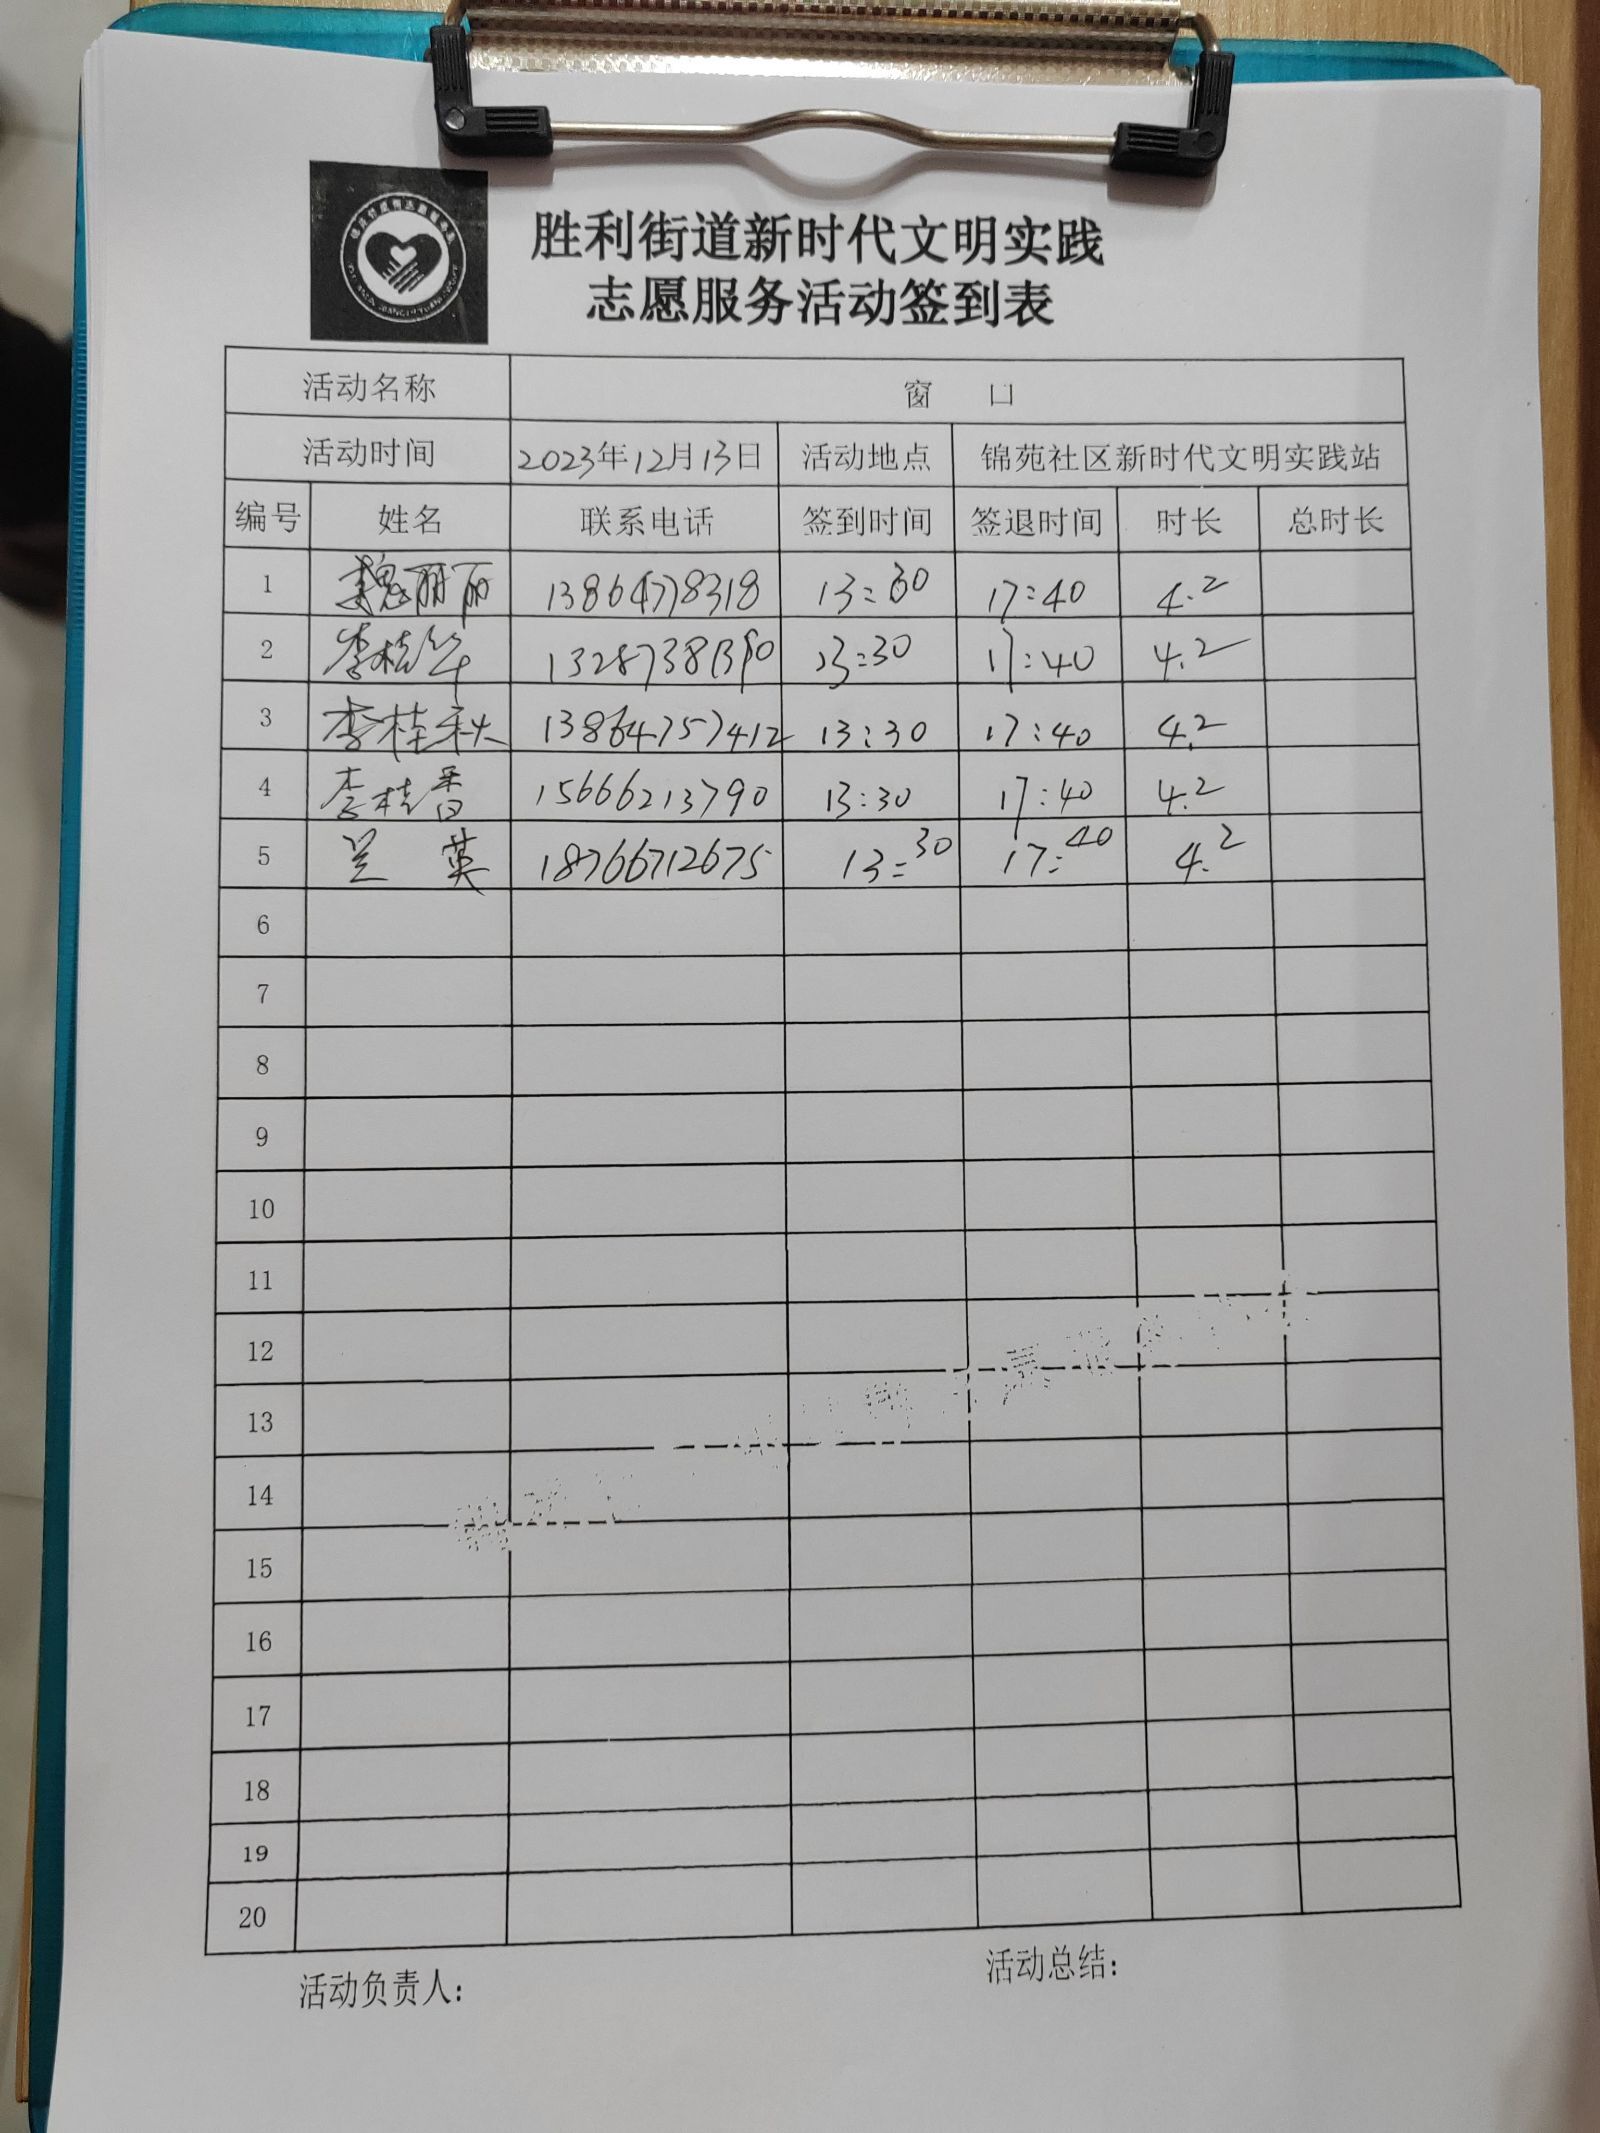 胜利街道新时代文明实践
志愿服务活动签到表
活动名称 窗 口
活动时间 2023年12月13日 活动地点 锦苑社区新时代文明实践站
编号 姓名 联系电话 签到时间 签退时间 时长 总时长
1 魏丽丽 13864778318 13:30 17:40 4.2
2 李桂华 13:30 17:40 4.2
3 李桂秋 13864757412 13:30 17:40 4.2
4 李桂香 15666213790 13:30 17:40 4.2
5 兰英 18766712675 13:30 17:40 4.2
6
7
8
9
10
11
12
13
14
15
16
17
18
19
20
活动负责人: 活动总结: